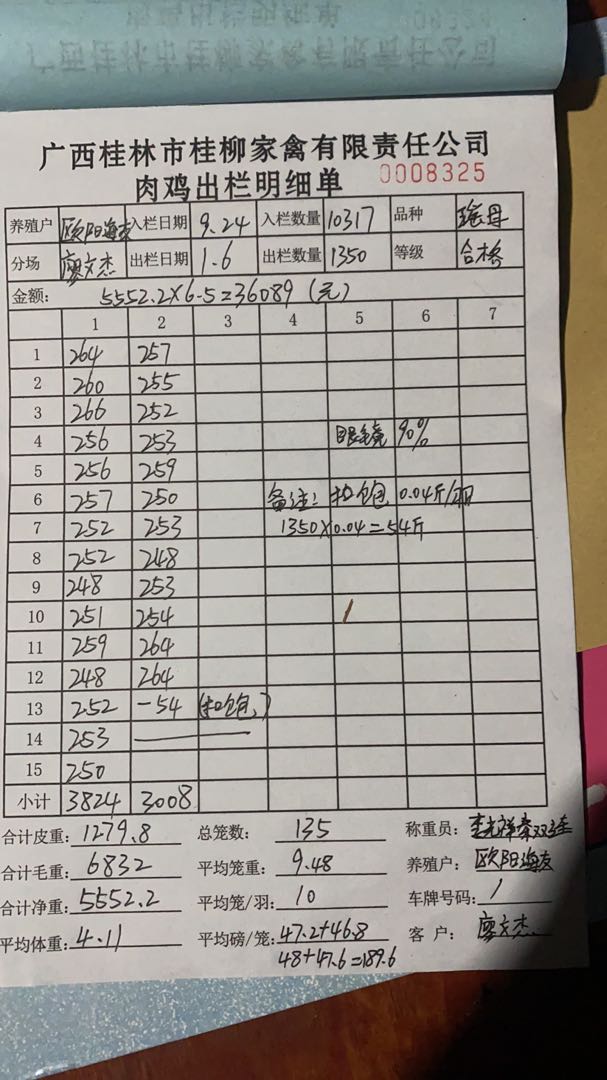 广西桂林市桂柳家禽有限责任公司
肉鸡出栏明细单 0008325
养殖户 欧阳海友 入栏日期 9.24 入栏数量 10317 品种 瑶母
分场 廖文杰 出栏日期 1.6 出栏数量 1350 等级 合格
金额: 5552.2×6.5=36089(元)
1 2 3 4 5 6 7
1 264 257
2 260 255
3 266 252
4 256 253 眼镜 90%
5 256 259
6 257 250 备注: 扣饱 0.04斤/羽
7 252 253 1350×0.04=54斤
8 252 248
9 248 253
10 251 254
11 259 264
12 248 264
13 252 -54 (扣饱)
14 253
15 250
小计 3824 3008
合计皮重: 1279.8 总笼数: 135 称重员:
合计毛重: 6832 平均笼重: 9.48 养殖户: 欧阳海友
合计净重: 5552.2 平均笼/羽: 10 车牌号码: /
平均体重: 4.11 平均磅/笼: 47.2+46.8 客户: 廖文杰
48+47.6=189.6